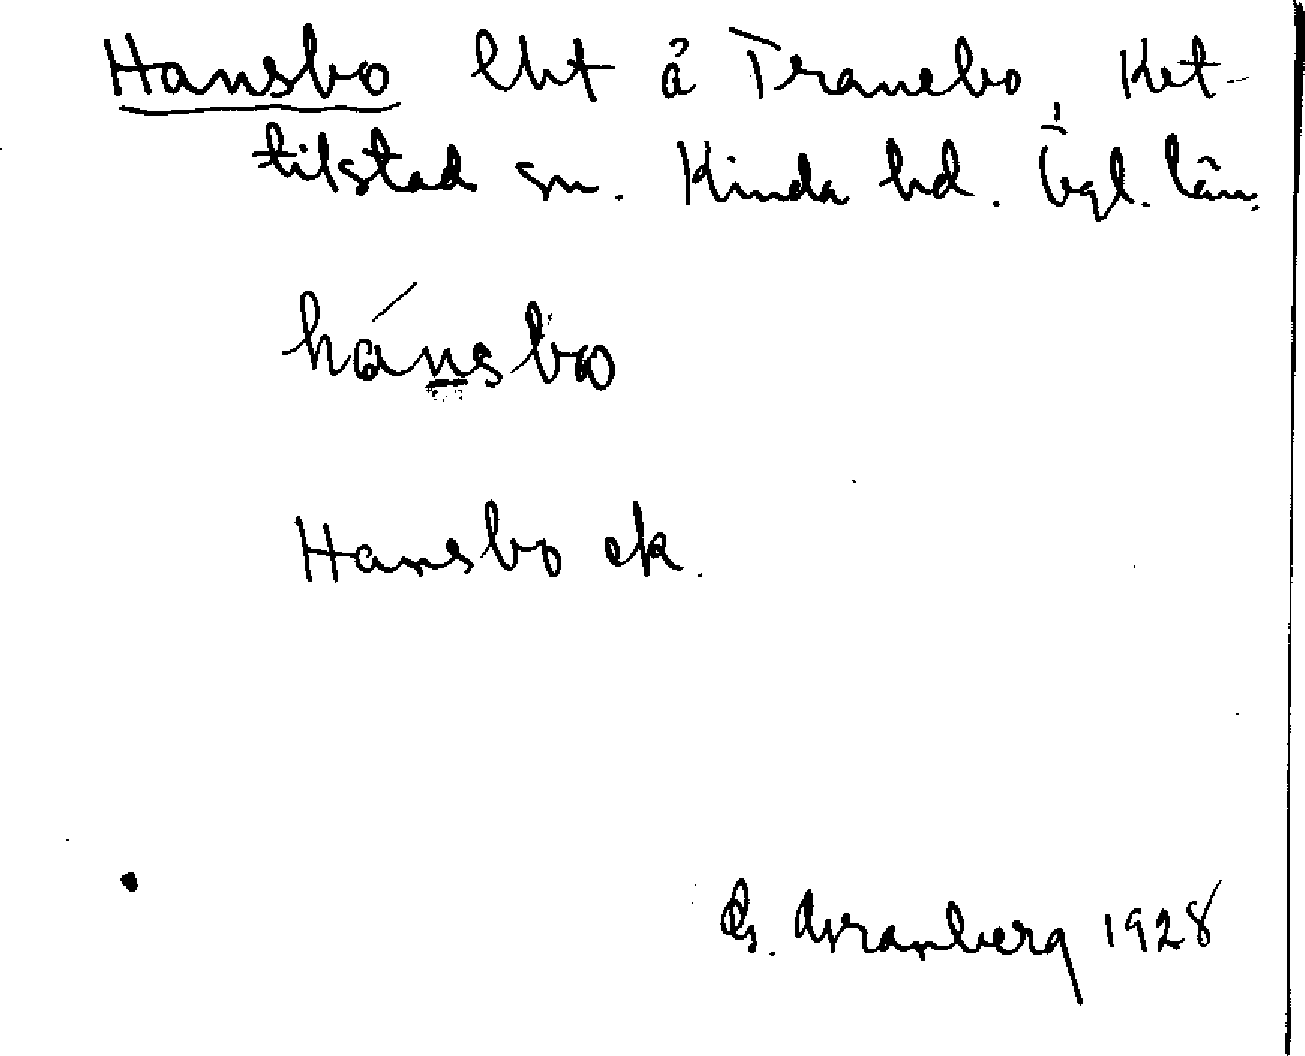 Hansbo lht å Tranebo, Ket-
tilstad sn. Kinda hd. Ögl. län.
hánsbo
Hansbo ek.
G. Granberg 1928